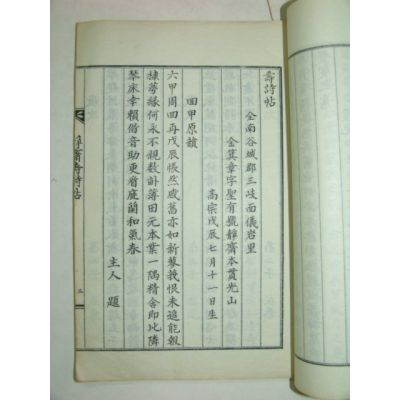 壽詩帖
全南谷城郡三岐面儀岩里
金箕章字聖有號靜齋本貫光山
高宗戊辰七月十一日生
回甲原韻
六甲周回再戊辰悵然感舊亦如新蓼莪恨未追能報
棣萼緣何永不親數卦薄田元本業一隅精舍即比隣
琴床幸賴偕音助更看庭蘭和氣春
主人 題
靜齋壽詩帖
三